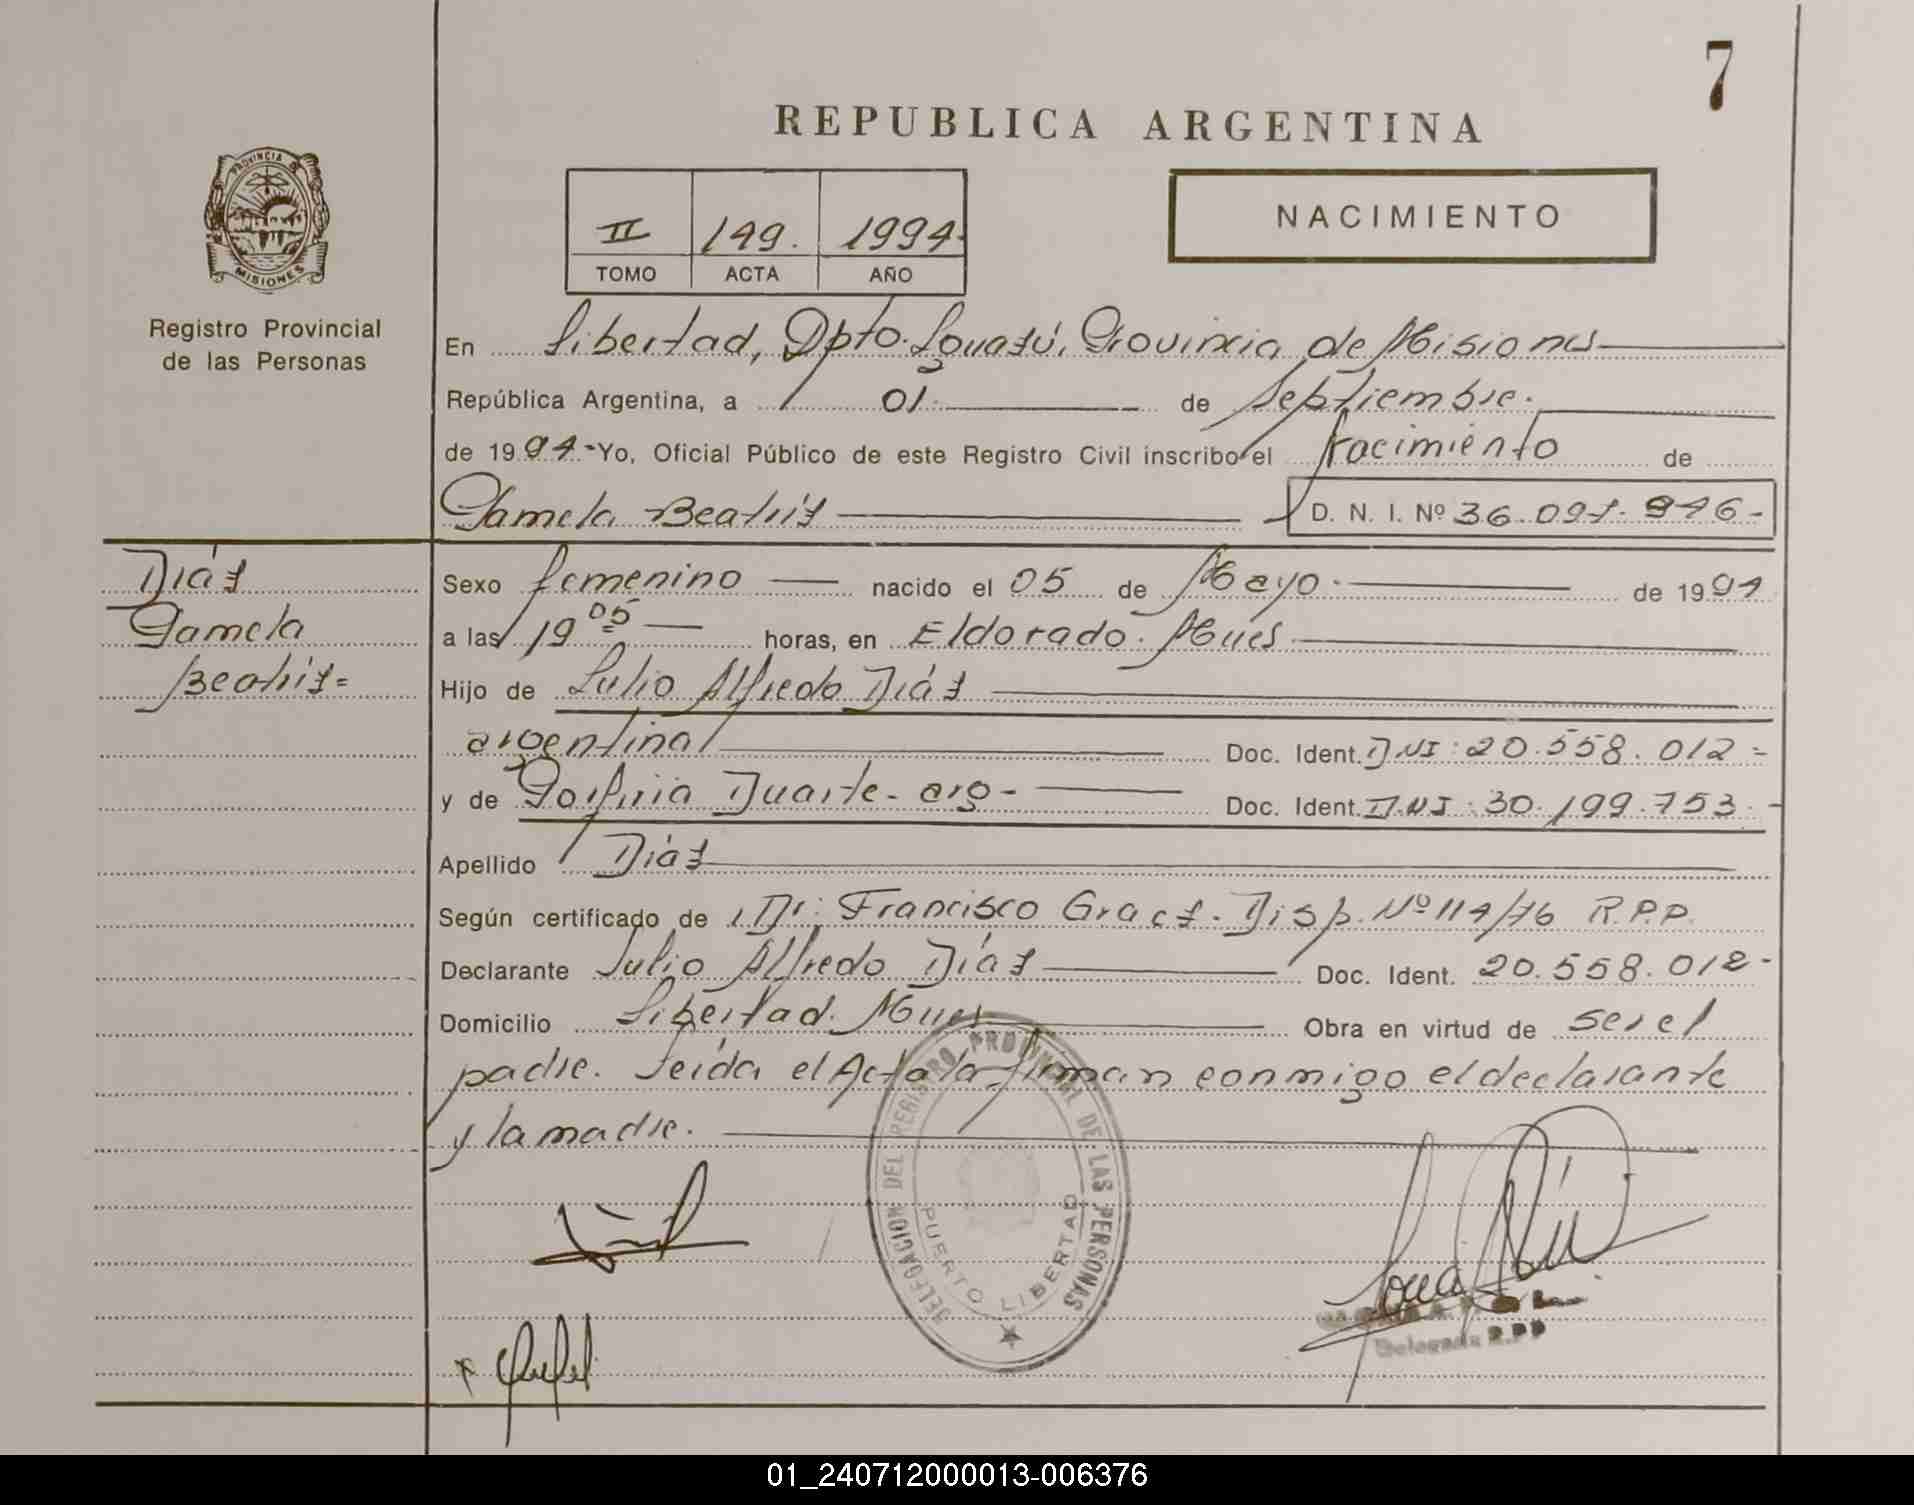 7
REPUBLICA ARGENTINA
PROVINCIA DE
MISIONES
Registro Provincial
de las Personas
II 149. 1994.
TOMO ACTA AÑO
NACIMIENTO
En Libertad, Dpto. Iguazú, Provincia de Misiones
República Argentina, a 01 de Septiembre.
de 1994- Yo, Oficial Público de este Registro Civil inscribo el nacimiento de
Pamela Beatríz D. N. I. Nº 36.091.946-
Diáz
Pamela
Beatríz=
Sexo femenino nacido el 05 de Mayo. de 1991
a las 19 05 horas, en Eldorado. Mnes
Hijo de Julio Alfredo Diáz
argentina Doc. Ident. DNI: 20.558.012=
y de Porfiria Duarte- arg- Doc. Ident. D.N.I: 30.199.753.-
Apellido Diáz
Según certificado de Dr: Francisco . Disp. Nº 114/76 R.P.P.
Declarante Julio Alfredo Díaz Doc. Ident. 20.558.012-
Domicilio Libertad. Mnes Obra en virtud de ser el
padre. Leída el Acta la firman conmigo el declarante
y la madre.
DELEGACION DEL REGISTRO PROVINCIAL DE LAS PERSONAS
PUERTO LIBERTAD
Delegada R.P.P
01_240712000013-006376